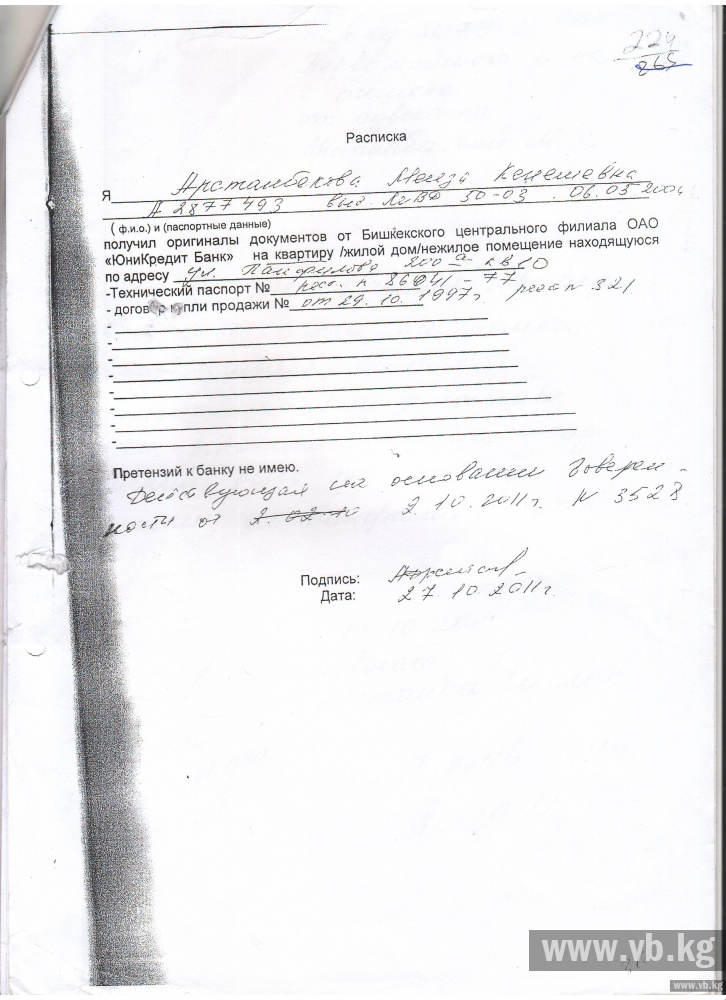 224
265
Расписка
Я Арстанбекова Кенешевна
А 2877493 выд. МВД 50-03 . 06.05.2004
( ф.и.о.) и (паспортные данные)
получил оригиналы документов от Бишкекского центрального филиала ОАО
«ЮниКредит Банк» на квартиру /жилой дом/нежилое помещение находящуюся
по адресу ул. Панфилова 200 кв 10
-Технический паспорт № реест. n - 77
- договор купли продажи № от 29.10.1997г реест n 321
-
-
-
-
-
-
-
Претензий к банку не имею.
Действующая на основании доверен-
ности от 2.02.10 2.10.2011г. N 3528
Подпись:
Дата: 27.10.2011г.
www.vb.kg
www.vb.kg